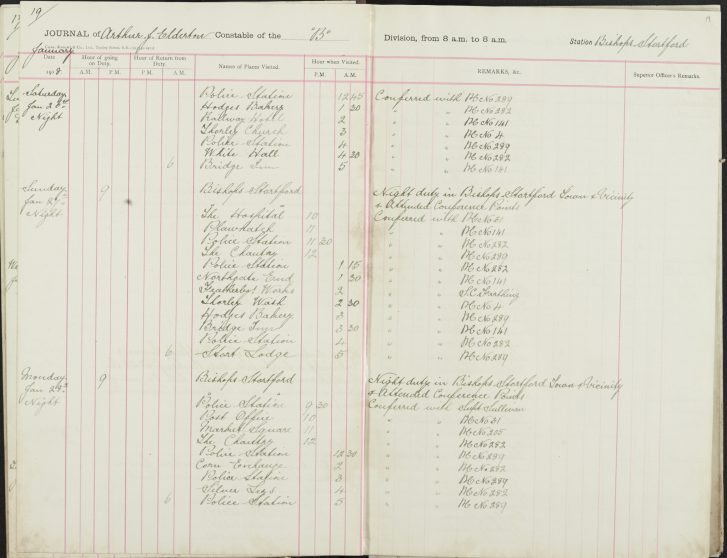 19
JOURNAL of Arthur J. Elderton Constable of the "B" Division, from 8 a.m. to 8 a.m. Station Bishops Stortford
January
Date Hour of going on Duty. Hour of Return from Duty. Names of Places Visited. Hour when Visited. REMARKS, &c. Superior Officer's Remarks.
190 8. A.M. P.M. P.M. A.M. P.M. A.M.
Saturday Police Station 12 45 Conferred with PC No 289
Jan 28th Hodges Bakery 1 30 " " PC No 282
Night Railway Hotel 2 " " PC No 141
Thorley Church 3 " " PC No 4
Police Station 4 " " PC No 289
White Hall 4 30 " " PC No 282
6 Bridge Inn 5 " " PC No 141
Sunday 9 Bishops Stortford Night duty in Bishops Stortford Town & Vicinity
Jan & Attended Conference Points
Night The Hospital 10 Conferred with PC No 31
11 " " PC No 141
Police Station 11 30 " " PC No 282
The Chantry 12 " " PC No 289
Police Station 1 15 " " PC No 282
Northgate End 1 30 " " PC No 141
Works 2 " " S.C. Farthing
Thorley Wash 2 30 " " PC No 4
Hodges Bakery 3 " " PC No 289
Bridge Inn 3 30 " " PC No 141
Police Station 4 " " PC No 282
6 Stort Lodge 5 " " PC No 289
Monday 9 Bishops Stortford Night duty in Bishops Stortford Town & Vicinity
Jan & Attended Conference Points
Night Police Station 9 30 Conferred with Supt Sullivan
Post Office 10 " " PC No 31
Market Square 11 " " PC No 205
The Chantry 12 " " PC No 282
Police Station 12 30 " " PC No 289
Corn Exchange 2 " " PC No 282
Police Station 3 " " PC No 289
Silver Legs 4 " " PC No 282
6 Police Station 5 " " PC No 289